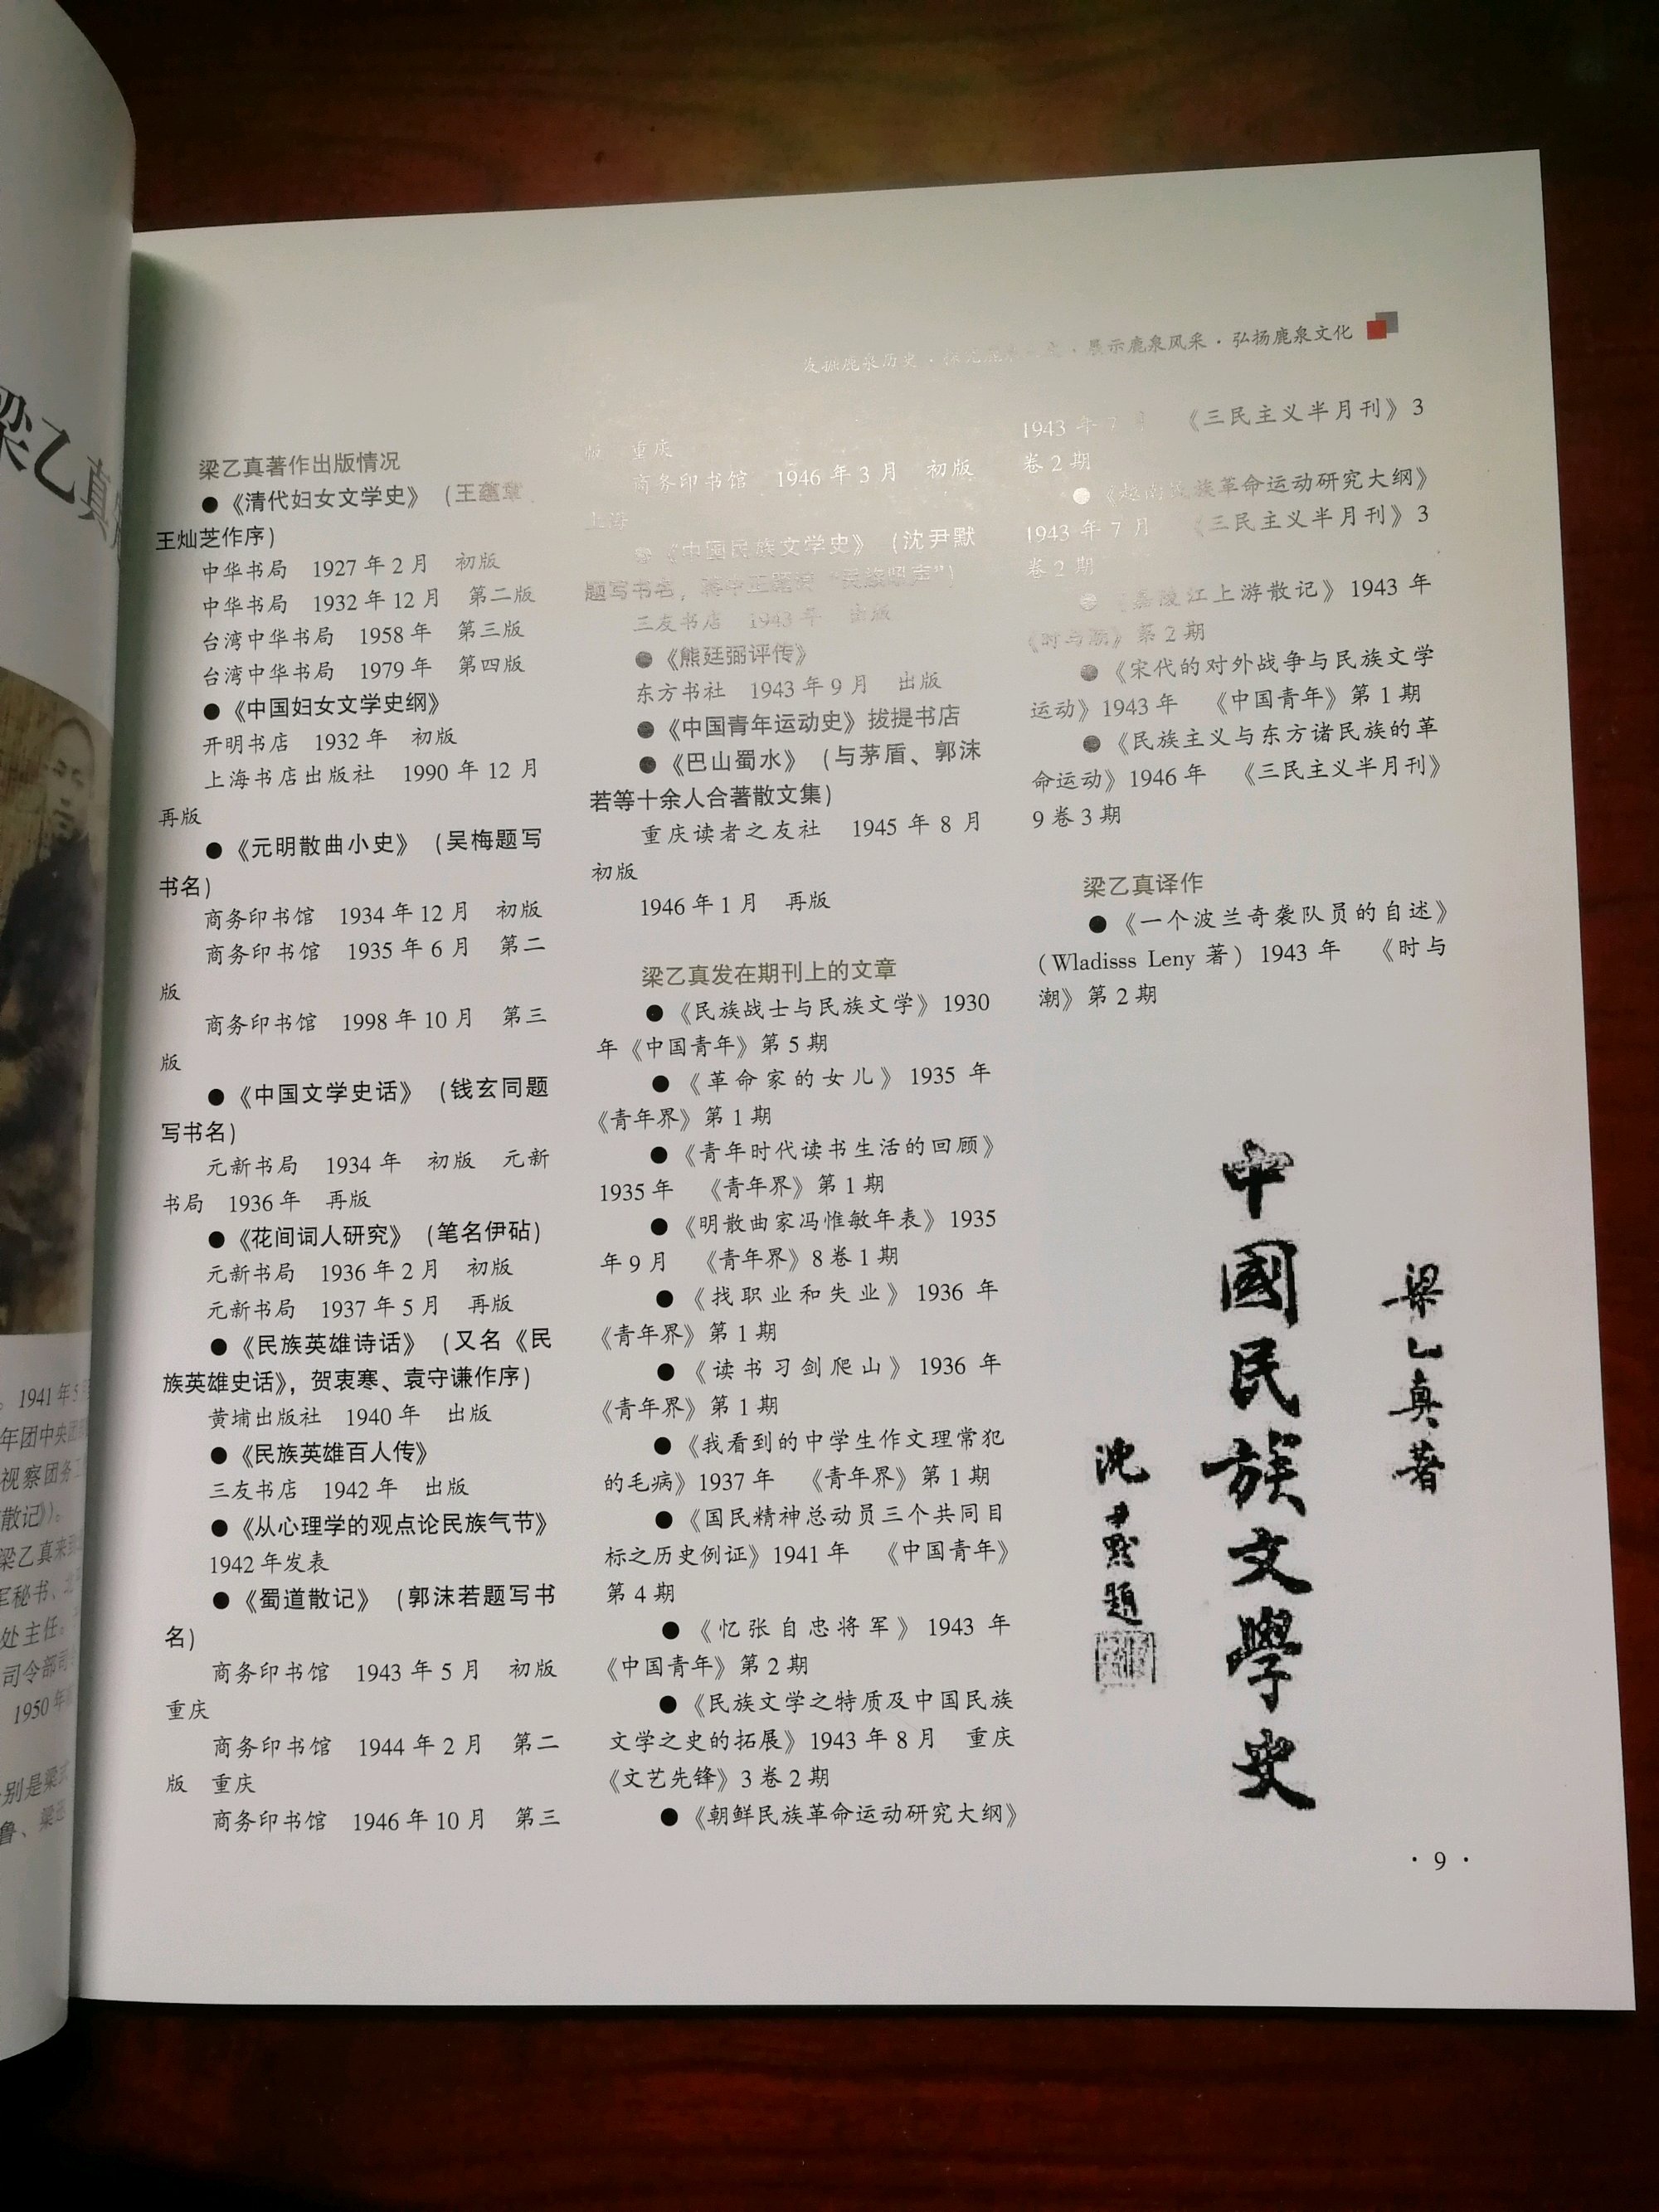 发掘鹿泉历史 · · 展示鹿泉风采 · 弘扬鹿泉文化
梁乙真著作出版情况
●《清代妇女文学史》（王蕴章、
王灿芝作序）
中华书局 1927 年 2 月 初版
中华书局 1932 年 12 月 第二版
台湾中华书局 1958 年 第三版
台湾中华书局 1979 年 第四版
●《中国妇女文学史纲》
开明书店 1932 年 初版
上海书店出版社 1990 年 12 月
再版
●《元明散曲小史》（吴梅题写
书名）
商务印书馆 1934 年 12 月 初版
商务印书馆 1935 年 6 月 第二
版
商务印书馆 1998 年 10 月 第三
版
●《中国文学史话》（钱玄同题
写书名）
元新书局 1934 年 初版 元新
书局 1936 年 再版
●《花间词人研究》（笔名伊砧）
元新书局 1936 年 2 月 初版
元新书局 1937 年 5 月 再版
●《民族英雄诗话》（又名《民
族英雄史话》，贺衷寒、袁守谦作序）
黄埔出版社 1940 年 出版
●《民族英雄百人传》
三友书店 1942 年 出版
●《从心理学的观点论民族气节》
1942 年发表
●《蜀道散记》（郭沫若题写书
名）
商务印书馆 1943 年 5 月 初版
重庆
商务印书馆 1944 年 2 月 第二
版 重庆
商务印书馆 1946 年 10 月 第三
版 重庆
商务印书馆 1946 年 3 月 初版
上海
●《中国民族文学史》（沈尹默
题写书名，蒋中正题词“民族昭声”）
三友书店 1943 年 出版
●《熊廷弼评传》
东方书社 1943 年 9 月 出版
●《中国青年运动史》拔提书店
●《巴山蜀水》（与茅盾、郭沫
若等十余人合著散文集）
重庆读者之友社 1945 年 8 月
初版
1946 年 1 月 再版
梁乙真发在期刊上的文章
●《民族战士与民族文学》1930
年《中国青年》第 5 期
●《革命家的女儿》1935 年
《青年界》第 1 期
●《青年时代读书生活的回顾》
1935 年 《青年界》第 1 期
●《明散曲家冯惟敏年表》1935
年 9 月 《青年界》8 卷 1 期
●《找职业和失业》1936 年
《青年界》第 1 期
●《读书习剑爬山》1936 年
《青年界》第 1 期
●《我看到的中学生作文理常犯
的毛病》1937 年 《青年界》第 1 期
●《国民精神总动员三个共同目
标之历史例证》1941 年 《中国青年》
第 4 期
●《忆张自忠将军》1943 年
《中国青年》第 2 期
●《民族文学之特质及中国民族
文学之史的拓展》1943 年 8 月 重庆
《文艺先锋》3 卷 2 期
●《朝鲜民族革命运动研究大纲》
1943 年 7 月 《三民主义半月刊》3
卷 2 期
●《越南民族革命运动研究大纲》
1943 年 7 月 《三民主义半月刊》3
卷 2 期
●《嘉陵江上游散记》1943 年
《时与潮》第 2 期
●《宋代的对外战争与民族文学
运动》1943 年 《中国青年》第 1 期
●《民族主义与东方诸民族的革
命运动》1946 年 《三民主义半月刊》
9 卷 3 期
梁乙真译作
●《一个波兰奇袭队员的自述》
（Wladisss Leny 著）1943 年 《时与
潮》第 2 期
梁乙真著
中國民族文學史
沈尹默題
· 9 ·
梁乙真
。1941 年 5
年团中央团
视察团务工
散记》）。
梁乙真来
军秘书、
处主任。
司令部司
1950 年
别是梁
鲁、梁